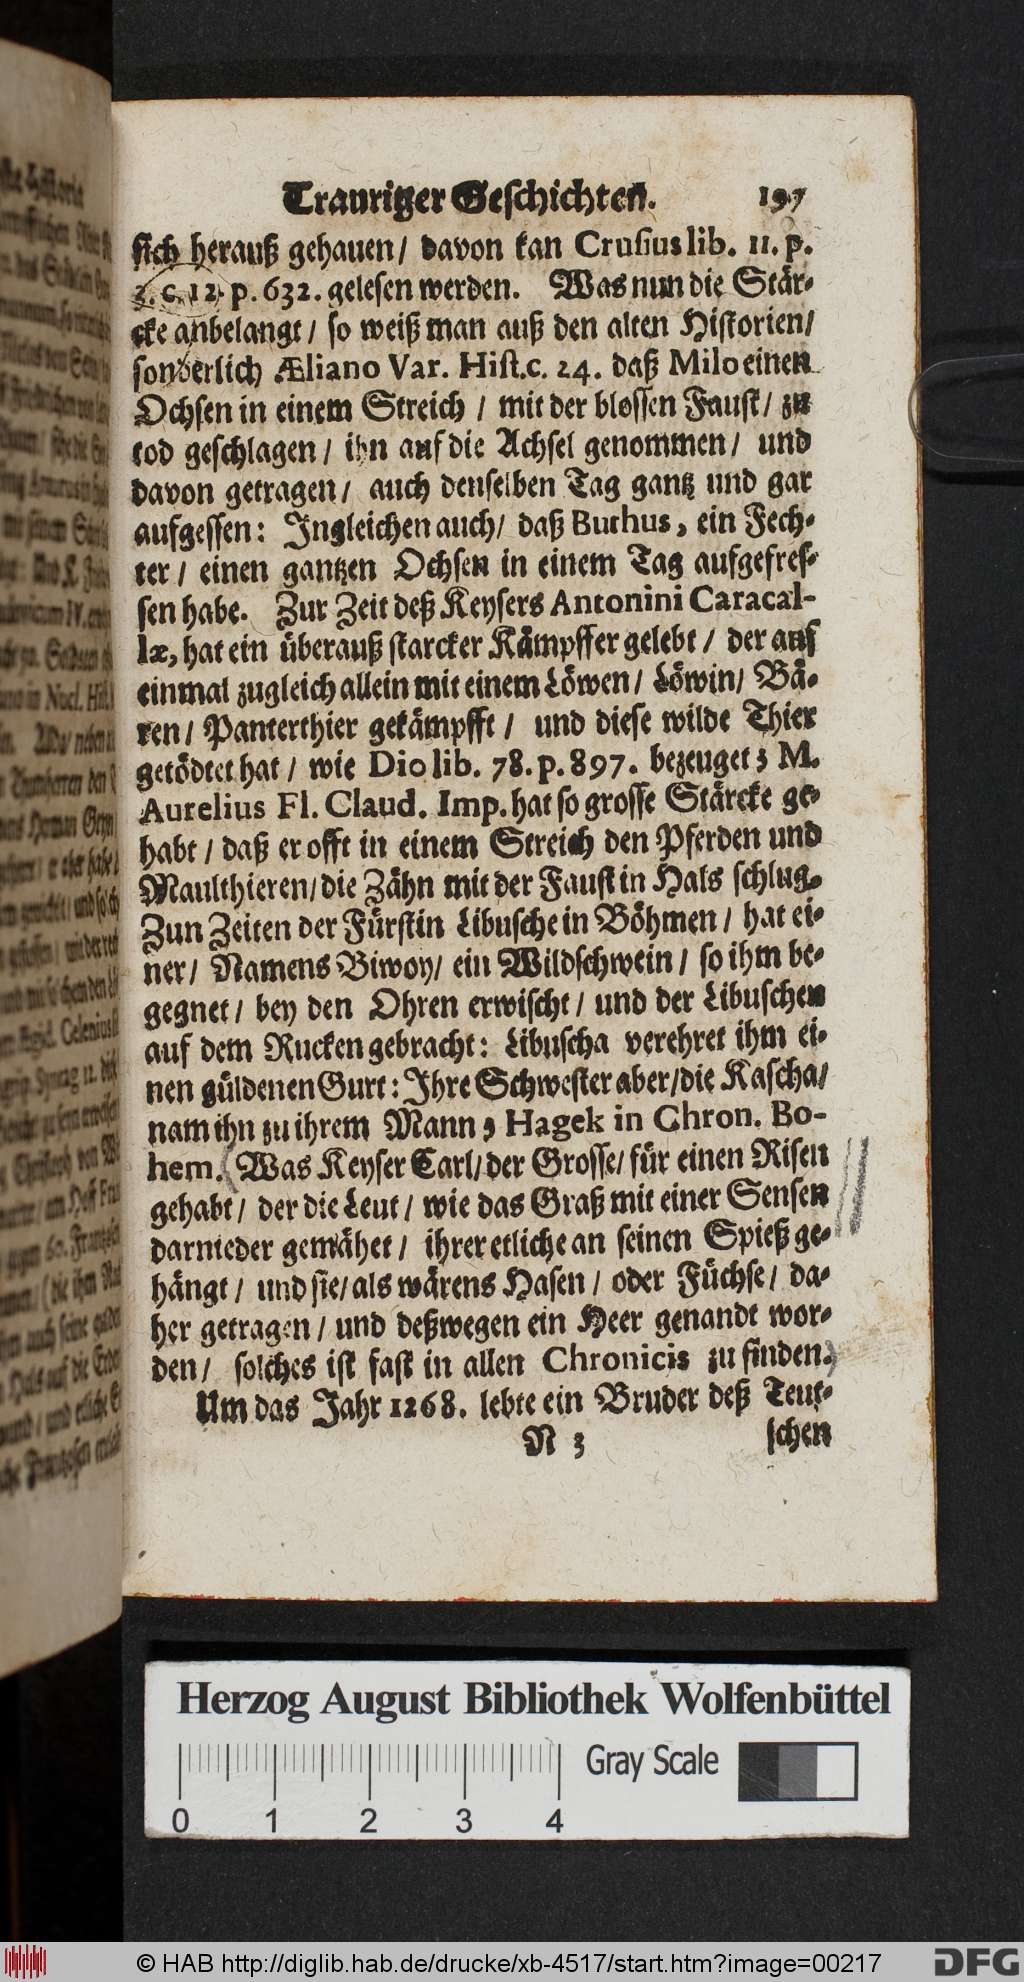 Trauriger Geschichten. 197
sich herauß gehauen / davon kan Crusius lib. 11. p.
3. c. 12. p. 632. gelesen werden. Was nun die Stär-
cke anbelangt / so weiß man auß den alten Historien /
sonderlich Æliano Var. Hist. c. 24. daß Milo einen
Ochsen in einem Streich / mit der blossen Faust / zu
tod geschlagen / ihn auf die Achsel genommen / und
davon getragen / auch denselben Tag gantz und gar
aufgessen: Ingleichen auch / daß Buthus, ein Fech-
ter / einen gantzen Ochsen in einem Tag aufgefres-
sen habe. Zur Zeit deß Keysers Antonini Caracal-
læ, hat ein überauß starcker Kämpffer gelebt / der auf
einmal zugleich allein mit einem Löwen / Löwin / Bä-
ren / Panterthier gekämpfft / und diese wilde Thier
getödtet hat / wie Dio lib. 78. p. 897. bezeuget; M.
Aurelius Fl. Claud. Imp. hat so grosse Stärcke ge-
habt / daß er offt in einem Streich den Pferden und
Maulthieren / die Zähn mit der Faust in Hals schlug.
Zun Zeiten der Fürstin Libusche in Böhmen / hat ei-
ner / Namens Biwoy / ein Wildschwein / so ihm be-
gegnet / bey den Ohren erwischt / und der Libuschen
auf dem Rucken gebracht: Libuscha verehret ihm ei-
nen güldenen Gurt: Ihre Schwester aber / die Kascha /
nam ihn zu ihrem Mann; Hagek in Chron. Bo-
hem. Was Keyser Carl / der Grosse / für einen Risen
gehabt / der die Leut / wie das Graß mit einer Sensen
darnieder gemähet / ihrer etliche an seinen Spieß ge-
hängt / und sie / als wärens Hasen / oder Füchse / da-
her getragen / und deßwegen ein Heer genandt wor-
den / solches ist fast in allen Chronicis zu finden.
Um das Jahr 1268. lebte ein Bruder deß Teut-
N 3 schen
Herzog August Bibliothek Wolfenbüttel
Gray Scale
0 1 2 3 4
© HAB http://diglib.hab.de/drucke/xb-4517/start.htm?image=00217
DFG